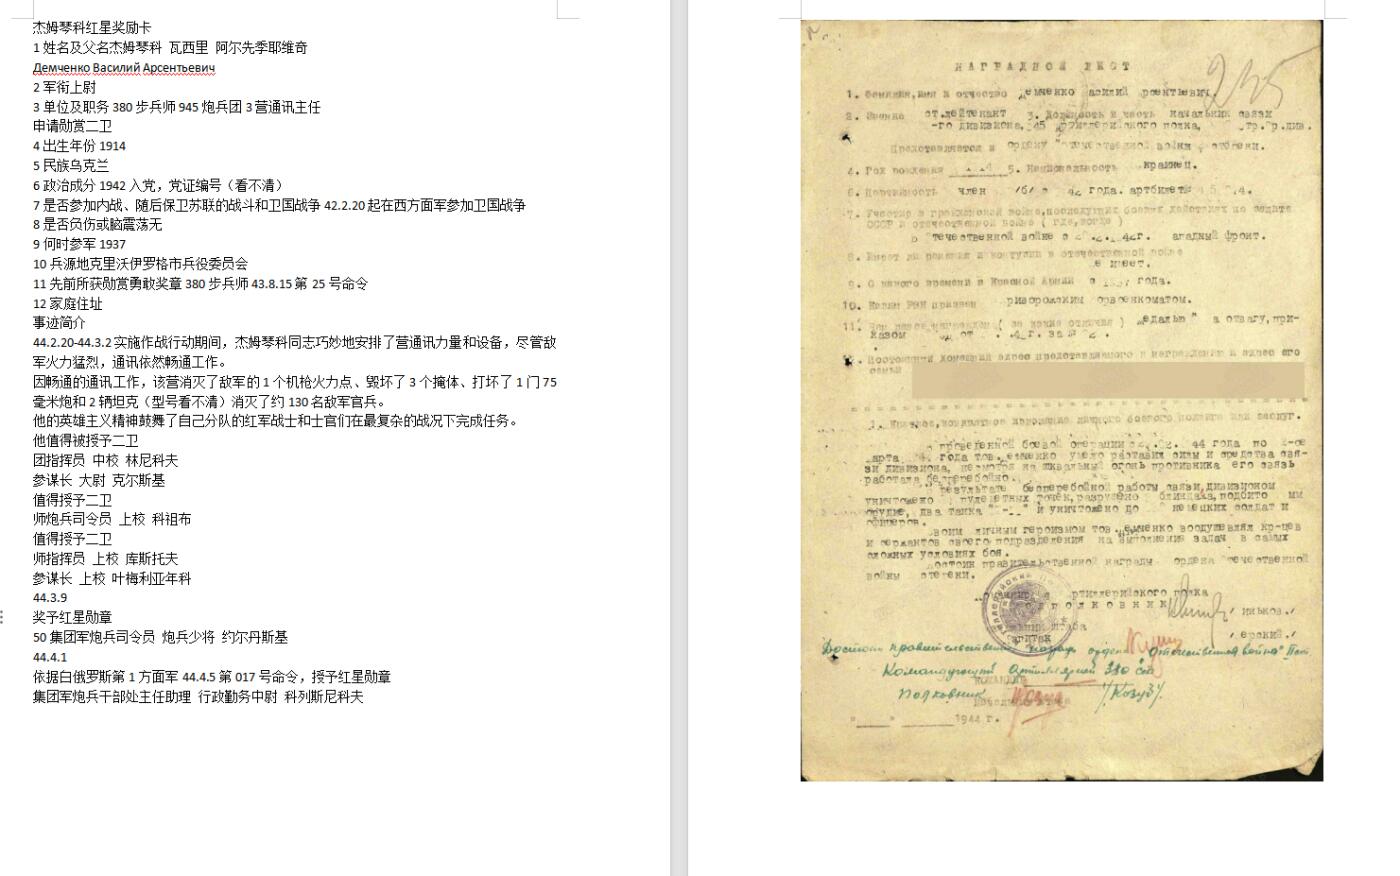 杰姆琴科红星奖励卡
1 姓名及父名杰姆琴科 瓦西里 阿尔先季耶维奇
Демченко Василий Арсентьевич
2 军衔上尉
3 单位及职务 380 步兵师 945 炮兵团 3 营通讯主任
申请勋赏二卫
4 出生年份 1914
5 民族乌克兰
6 政治成分 1942 入党，党证编号（看不清）
7 是否参加内战、随后保卫苏联的战斗和卫国战争 42.2.20 起在西方面军参加卫国战争
8 是否负伤或脑震荡无
9 何时参军 1937
10 兵源地克里沃伊罗格市兵役委员会
11 先前所获勋赏勇敢奖章 380 步兵师 43.8.15 第 25 号命令
12 家庭住址
事迹简介
44.2.20-44.3.2 实施作战行动期间，杰姆琴科同志巧妙地安排了营通讯力量和设备，尽管敌
军火力猛烈，通讯依然畅通工作。
因畅通的通讯工作，该营消灭了敌军的 1 个机枪火力点、毁坏了 3 个掩体、打坏了 1 门 75
毫米炮和 2 辆坦克（型号看不清）消灭了约 130 名敌军官兵。
他的英雄主义精神鼓舞了自己分队的红军战士和士官们在最复杂的战况下完成任务。
他值得被授予二卫
团指挥员 中校 林尼科夫
参谋长 大尉 克尔斯基
值得授予二卫
师炮兵司令员 上校 科祖布
值得授予二卫
师指挥员 上校 库斯托夫
参谋长 上校 叶梅利亚年科
44.3.9
奖予红星勋章
50 集团军炮兵司令员 炮兵少将 约尔丹斯基
44.4.1
依据白俄罗斯第 1 方面军 44.4.5 第 017 号命令，授予红星勋章
集团军炮兵干部处主任助理 行政勤务中尉 科列斯尼科夫
НАГРАДНОЙ ЛИСТ
1. Фамилия, имя и отчество демченко
2. Звание ст.лейтенант 3. Должность и часть начальник связи
-го дивизиона, артиллерийского полка,
Представляется к ордену
4. Год рождения 5. Национальность краинец.
6. Партийность член года.
7. Участие в гражданской войне, последующих боевых действиях по защите
СССР и отечественной войне ( где, когда )
течественной войне с ападный фронт.
8. Имеет ли ранения и контузии в отечественной войне
е имеет.
9. С какого времени в Красной Армии с года.
10. Каким РВК призван риворожским орвоенкоматом.
11. Чем ранее награжден ( за какие отличия ) едалью " а отвагу, при-
казом от
12. Постоянный домашний адрес представляемого к награждению и адрес его
семьи
1. Краткое, конкретное изложение личного боевого подвига или заслуг.
проведенной боевой операции 44 года по
арта года тов. емченко умело расставил силы и средства свя-
зи дивизиона, несмотря на шквальный огонь противника его связь
работала бесперебойно.
результате бесперебойной работы связи, дивизионом
уничтожено пулеметных точек, разрушено блиндажа, подбито мм
орудие, два танка и уничтожено до немецких солдат и
офицеров.
воим личным героизмом тов. емченко воодушевлял кр-цев
и сержантов своего подразделения на выполнение задач в самых
сложных условиях боя.
достоин правительственной награды ордена течественной
войны степени.
артиллерийского полка
подполковник
штаба
капитан
Достоин правительственной награды орден "Отечественная война" II ст.
Командующий артиллерией 380 сд
Полковник /Козуб/
1944 г.